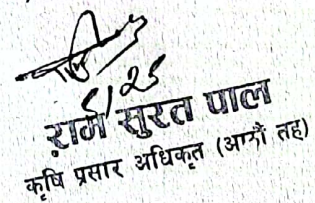 5/25
राम सुरत पाल
कृषि प्रसार अधिकृत (आठौं तह)